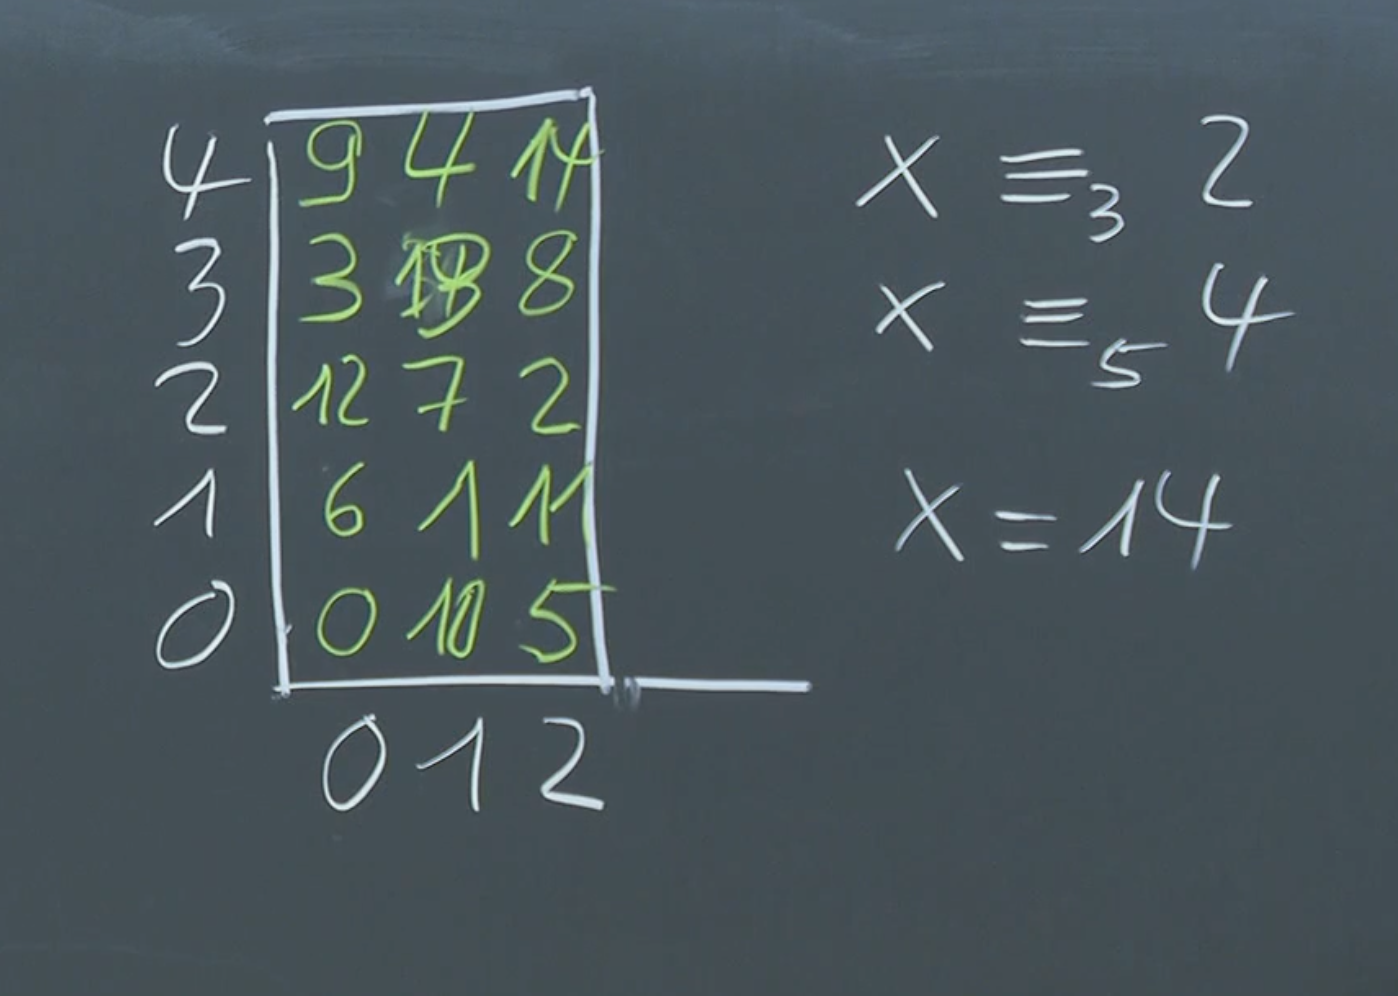 4 9 4 14
3 3 13 8
2 12 7 2
1 6 1 11
0 0 10 5
0 1 2
x ≡₃ 2
x ≡₅ 4
x = 14